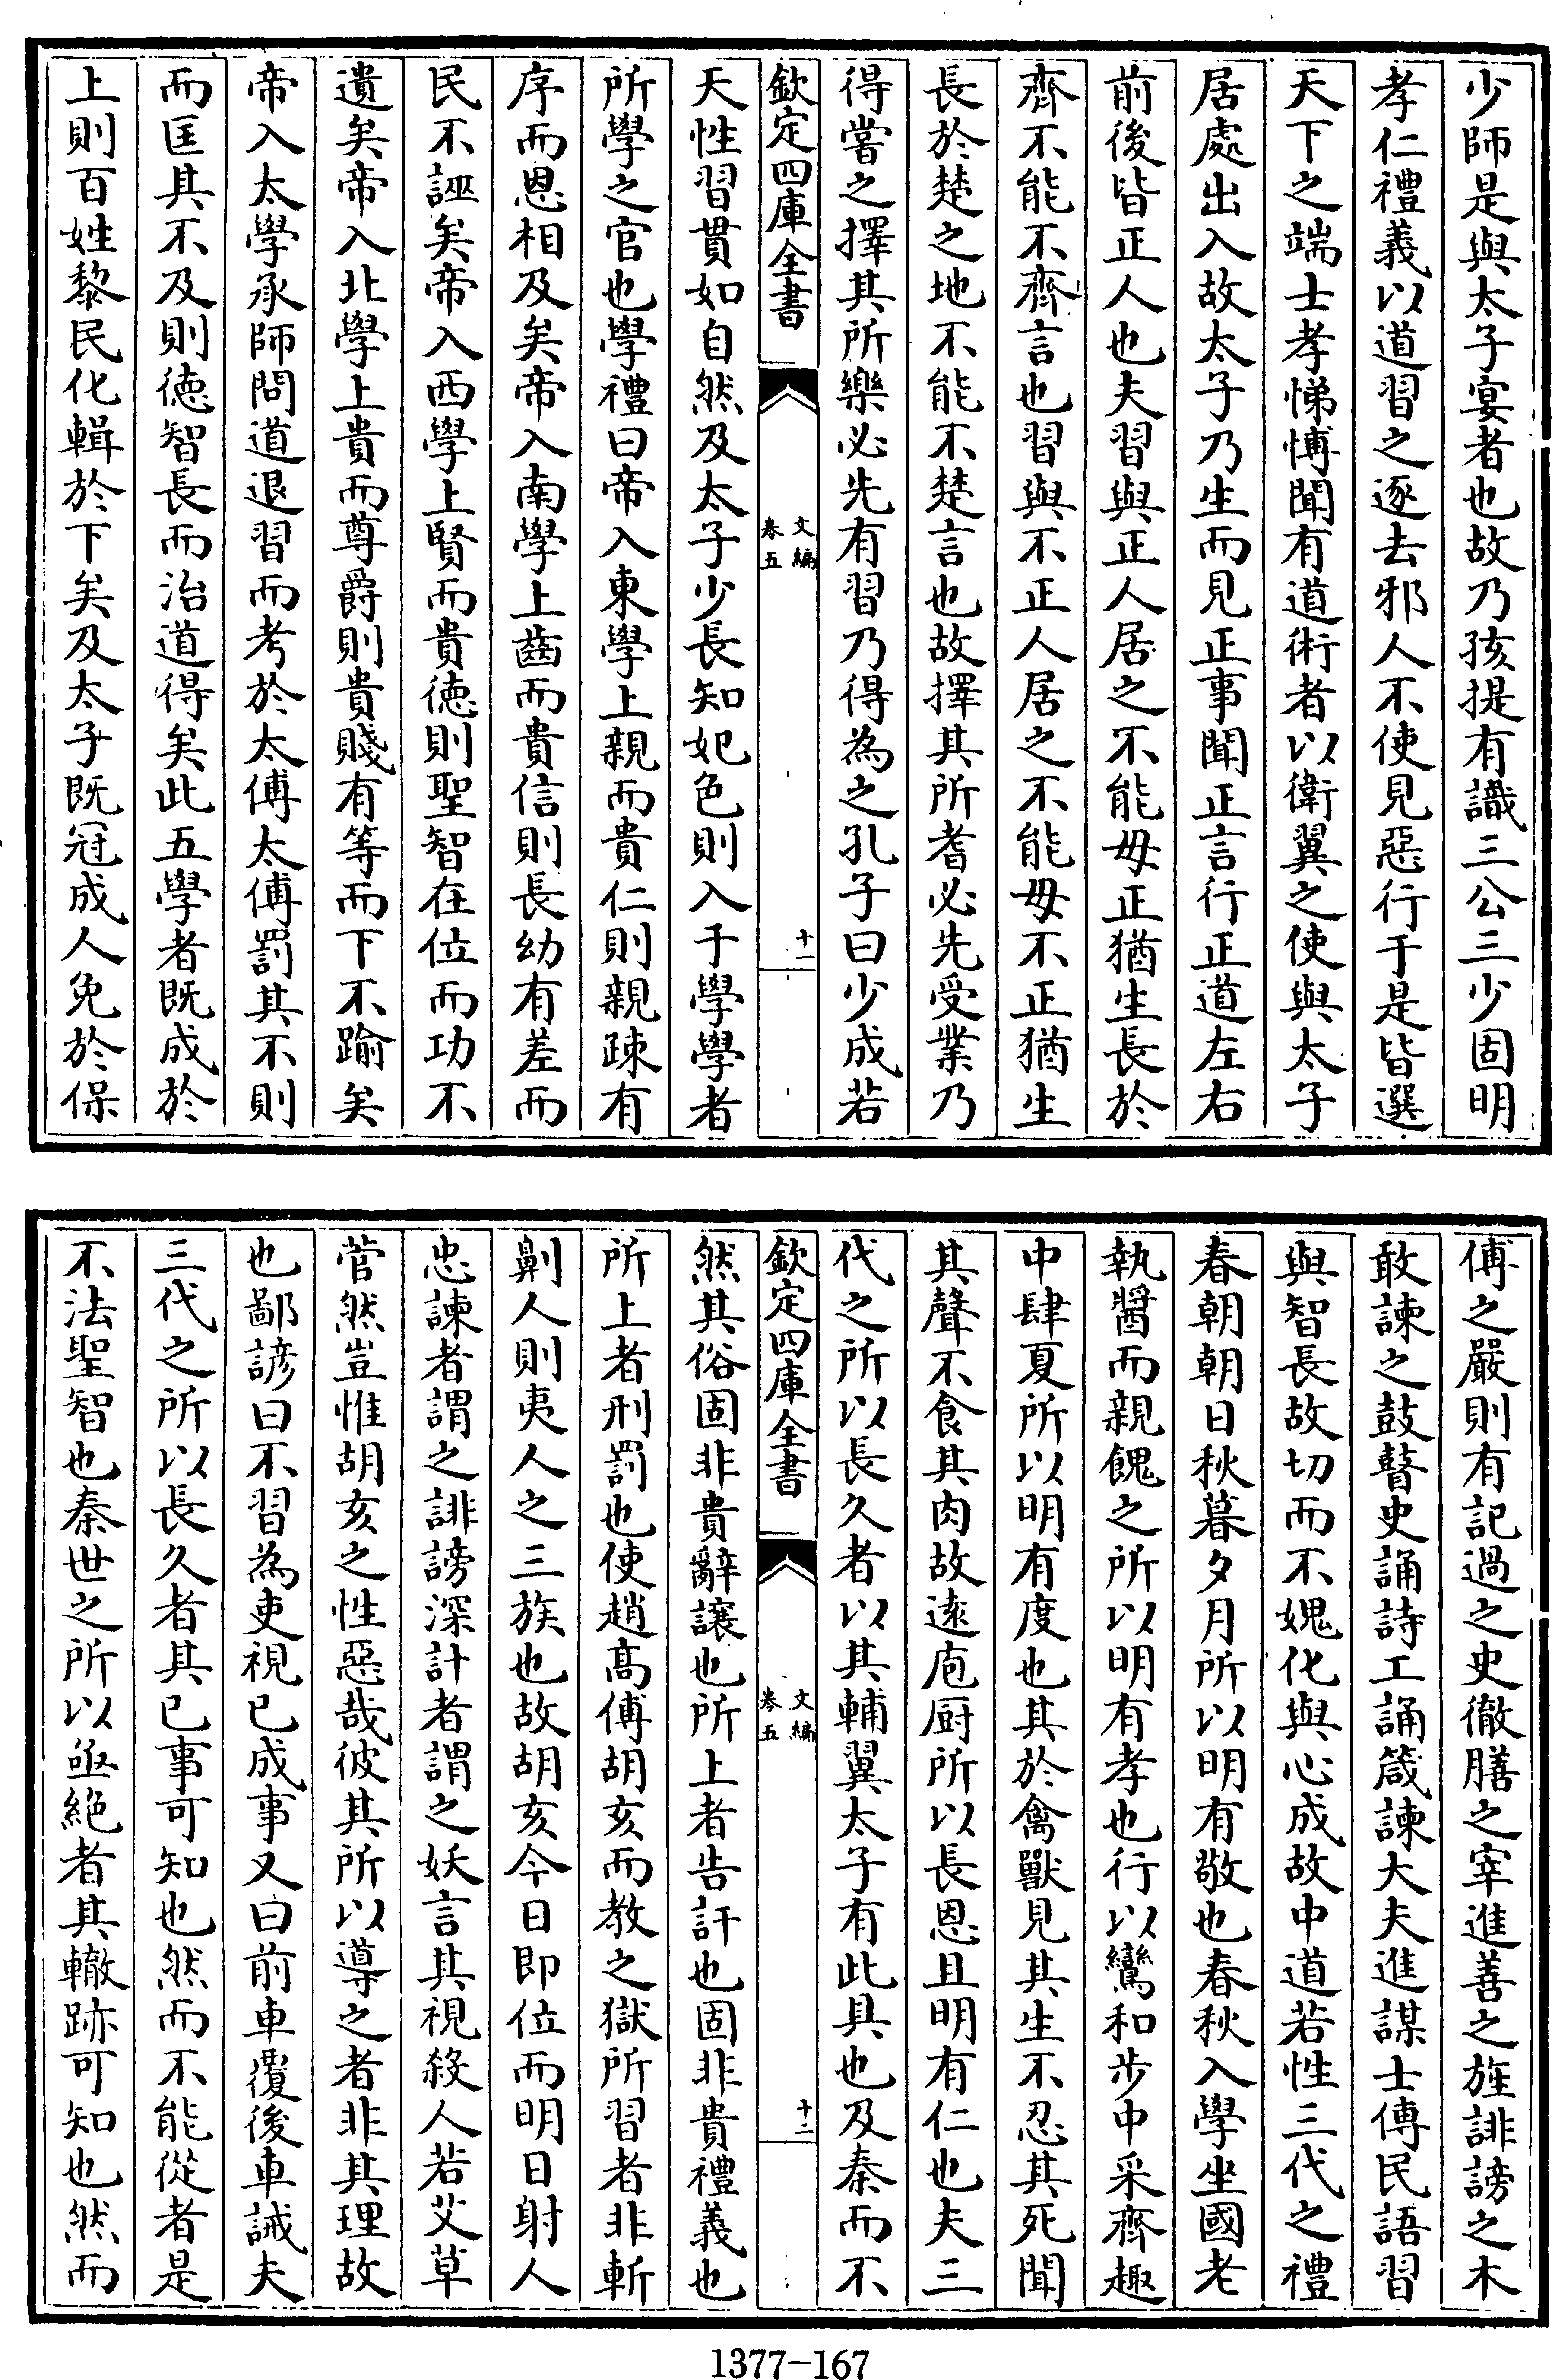 少師是與太子宴者也故乃孩提有識三公三少固明
孝仁禮義以道習之逐去邪人不使見惡行于是皆選
天下之端士孝悌博聞有道術者以衛翼之使與太子
居處出入故太子乃生而見正事聞正言行正道左右
前後皆正人也夫習與正人居之不能毋正猶生長於
齊不能不齊言也習與不正人居之不能毋不正猶生
長於楚之地不能不楚言也故擇其所耆必先受業乃
得嘗之擇其所樂必先有習乃得為之孔子曰少成若
欽定四庫全書
文編
卷五
十一
天性習貫如自然及太子少長知妃色則入于學學者
所學之官也學禮曰帝入東學上親而貴仁則親疎有
序而恩相及矣帝入南學上齒而貴信則長幼有差而
民不誣矣帝入西學上賢而貴德則聖智在位而功不
遺矣帝入北學上貴而尊爵則貴賤有等而下不踰矣
帝入太學承師問道退習而考於太傅太傅罰其不則
而匡其不及則德智長而治道得矣此五學者既成於
上則百姓黎民化輯於下矣及太子既冠成人免於保
傅之嚴則有記過之史徹膳之宰進善之旌誹謗之木
敢諫之鼓瞽史誦詩工誦箴諫大夫進謀士傳民語習
與智長故切而不媿化與心成故中道若性三代之禮
春朝朝日秋暮夕月所以明有敬也春秋入學坐國老
執醬而親餽之所以明有孝也行以鸞和步中采齊趣
中肆夏所以明有度也其於禽獸見其生不忍其死聞
其聲不食其肉故逺庖厨所以長恩且明有仁也夫三
代之所以長久者以其輔翼太子有此具也及秦而不
欽定四庫全書
文編
卷五
十二
然其俗固非貴辭讓也所上者告訐也固非貴禮義也
所上者刑罰也使趙高傅胡亥而教之獄所習者非斬
劓人則夷人之三族也故胡亥今日即位而明日射人
忠諫者謂之誹謗深計者謂之妖言其視殺人若艾草
菅然豈惟胡亥之性惡哉彼其所以導之者非其理故
也鄙諺曰不習為吏視已成事又曰前車覆後車誡夫
三代之所以長久者其已事可知也然而不能從者是
不法聖智也秦世之所以亟絕者其轍跡可知也然而
1377-167